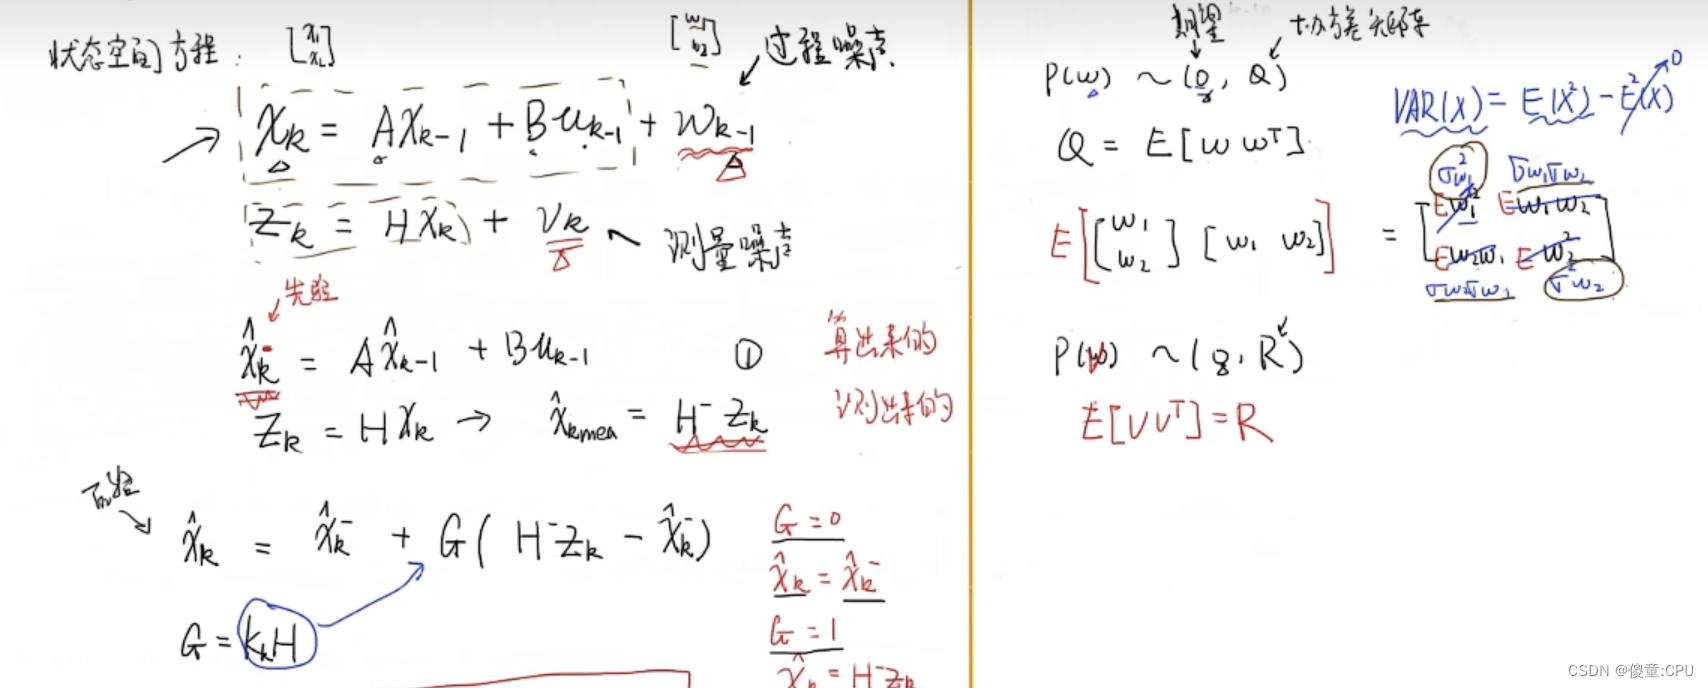 状态空间方程: [x₁ x₂]
[w₁ w₂] 过程噪声
Xₖ = AXₖ₋₁ + Buₖ₋₁ + wₖ₋₁
Zₖ = HXₖ + Vₖ 测量噪声
先验
x̂ₖ⁻ = Ax̂ₖ₋₁ + Buₖ₋₁ ① 算出来的
Zₖ = HXₖ → x̂ₖₘₑₐ = H⁻Zₖ 测出来的
后验
x̂ₖ = x̂ₖ⁻ + G(H⁻Zₖ - x̂ₖ⁻)
G = KₖH
G = 0
x̂ₖ = x̂ₖ⁻
G = 1
x̂ₖ = H⁻Zₖ
期望 协方差矩阵
P(w) ~ (0, Q)
Q = E[w wᵀ]
VAR(X) = E(X²) - E²(X) 0
E[[w₁ w₂] [w₁ w₂]] = [Ew₁² Ew₁w₂ Ew₂w₁ Ew₂²]
σ²w₁ σw₁σw₂
σw₂σw₁ σ²w₂
P(v) ~ (0, R)
E[VVᵀ] = R
CSDN @傻童:CPU